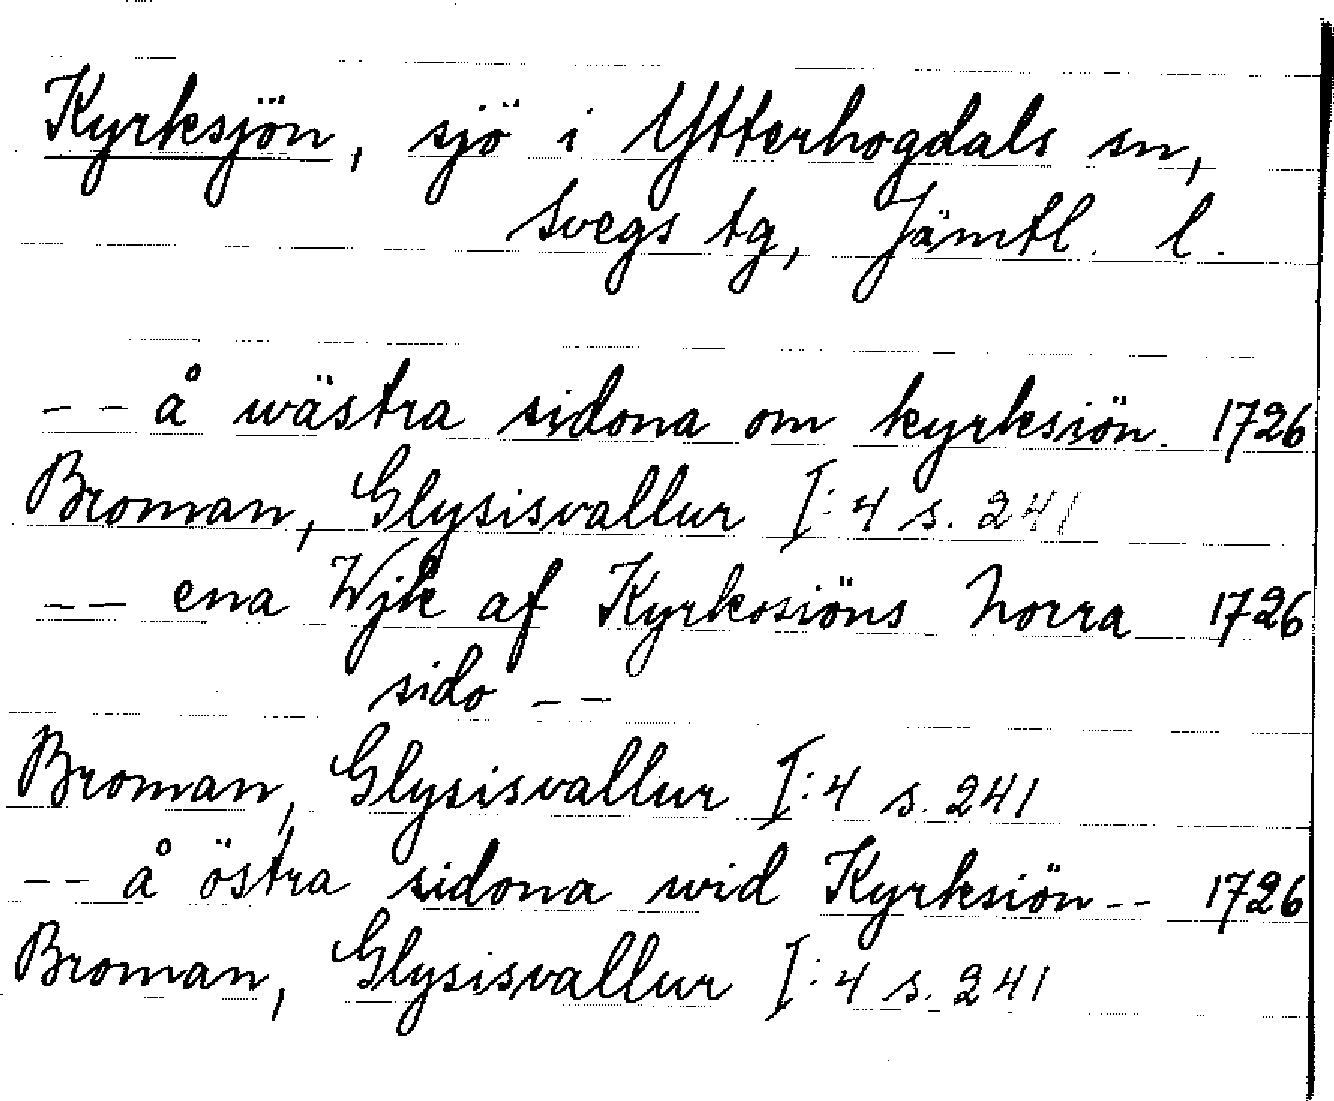 Kyrksjön, sjö i Ytterhogdals sn,
Svegs tg, Jämtl. l.
-- å wästra sidona om kyrksiön. 1726
Broman, Glysisvallur I:4 s. 241
-- ena Wjk af Kyrkosiöns Norra 1726
sido --
Broman, Glysisvallur I:4 s. 241
-- å östra sidona wid Kyrksiön -- 1726
Broman, Glysisvallur I:4 s. 241